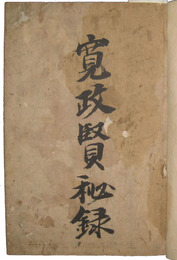 寛政賢秘録